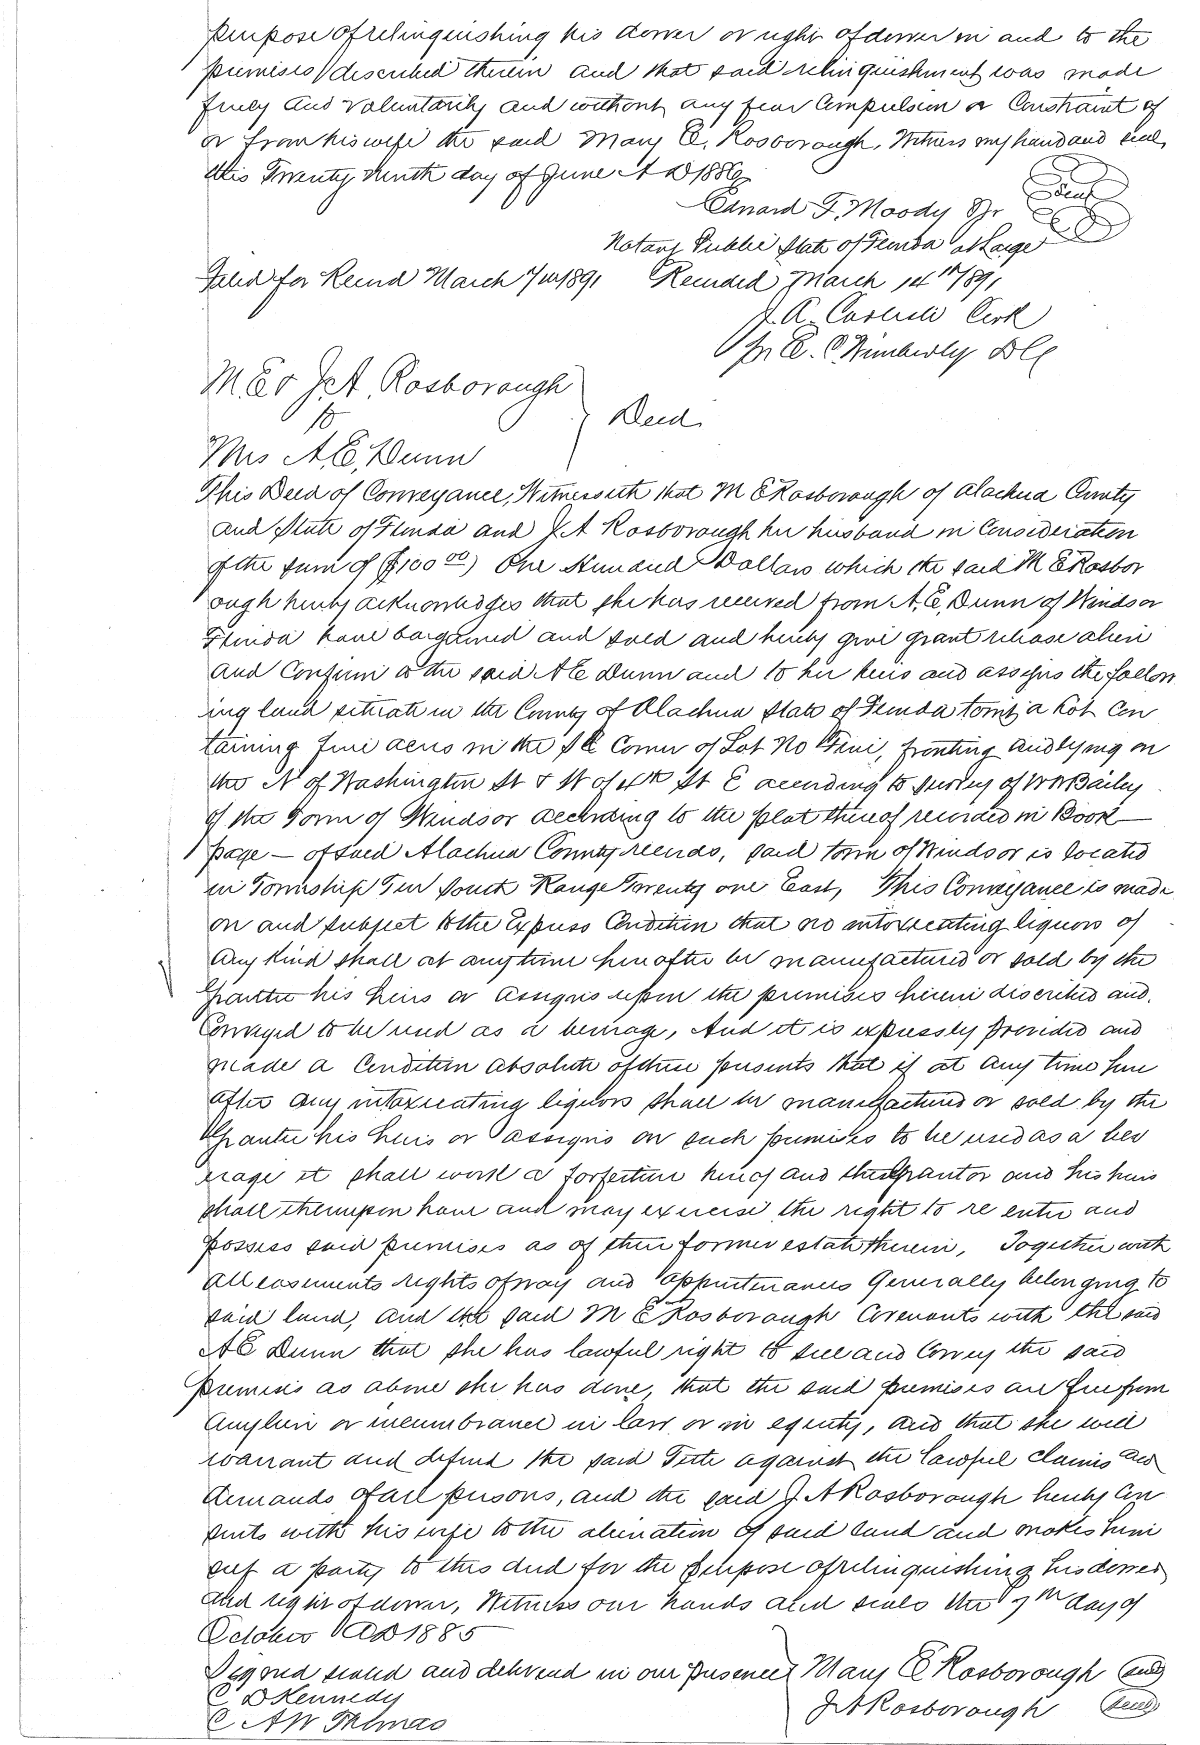 purpose of relinquishing his dower or right of dower in and to the
premises described therein and that said relinquishment was made
freely and voluntarily and without any fear Compulsion or Constraint of
or from his wife the said Mary E. Rosborough. Witness my hand and seal
this Twenty Ninth day of June A D 1886
Edward F. Moody Jr Seal
Notary Public State of Florida at Large
Filed for Record March 7th 1891 Recorded March 14th 1891
J. A. Carlisle Clerk
pr E. C. Wimberly D C
M. E & J. A. Rosborough
to
Deed.
Mrs A. E. Dunn
This Deed of Conveyance, Witnesseth that M E Rosborough of Alachua County
and State of Florida and J A Rosborough her husband in Consideration
of the sum of ($100 00) One Hundred Dollars which the said M E Rosbor
ough hereby acknowledges that she has received from A. E. Dunn of Windsor
Florida have bargained and sold and hereby give grant release alien
and Confirm to the said A E Dunn and to her heirs and assigns the follow
ing land situate in the County of Alachua State of Florida towit, a Lot Con
taining five acres in the S E Corner of Lot No Five, fronting and lying on
the N of Washington St & W of 4th St E according to survey of W W Bailey
of the Town of Windsor according to the plat thereof recorded in Book —
page — of said Alachua County records, said town of Windsor is located
in Township Ten South Range Twenty one East, This Conveyance is made
on and subject to the Express Condition that no intoxicating liquors of
any kind shall at any time hereafter be manufactured or sold by the
Grantee his heirs or assigns upon the premises herein discribed and
Conveyed to be used as a beverage, And it is expressly provided and
made a Condition absolute of these presents that if at any time here
after any intoxicating liquors shall be manufactured or sold by the
Grantee his heirs or assigns on such premises to be used as a bev
erage it shall work a forfeiture hereof and the Grantor and his heirs
shall thereupon have and may exercise the right to re enter and
possess said premises as of their former estate therein, Together with
all easements rights of way and appurtenances Generally belonging to
said land, and the said M E Rosborough Covenants with the said
A E Dunn that she has lawful right to sell and Convey the said
premises as above she has done, that the said premises are free from
any lien or incumbrance in law or in equity, and that she will
warrant and defend the said Title against the lawful claims and
demands of all persons, and the said J A Rosborough hereby Con
sents with his wife to the alienation of said land and makes him
self a party to this deed for the purpose of relinquishing his dower
and right of dower, Witness our hands and seals the 7th day of
October AD 1885
Signed sealed and delivered in our presence Mary E Rosborough Seal
C D Kennedy
J A Rosborough Seal
C A W Thomas